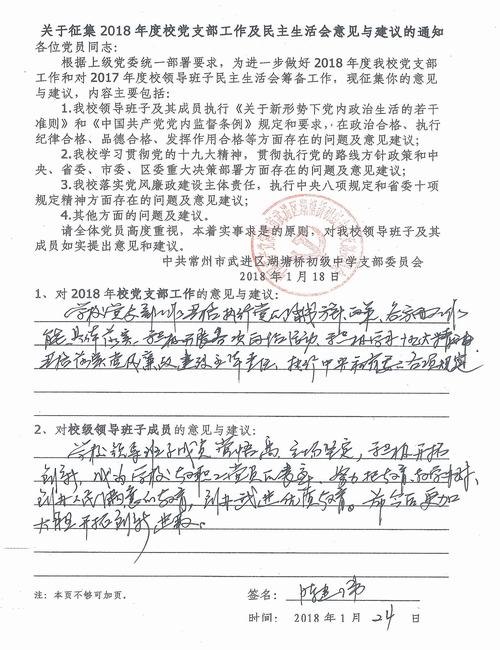 关于征集 2018 年度校党支部工作及民主生活会意见与建议的通知
各位党员同志：
根据上级党委统一部署要求，为进一步做好 2018 年度我校党支部
工作和对 2017 年度校领导班子民主生活会筹备工作，现征集你的意见
与建议，内容主要包括：
1.我校领导班子及其成员执行《关于新形势下党内政治生活的若干
准则》和《中国共产党党内监督条例》规定和要求，在政治合格、执行
纪律合格、品德合格、发挥作用合格等方面存在的问题及意见建议；
2.我校学习贯彻党的十九大精神，贯彻执行党的路线方针政策和中
央、省委、市委、区委重大决策部署方面存在的问题及意见建议；
3.我校落实党风廉政建设主体责任，执行中央八项规定和省委十项
规定精神方面存在的问题及意见建议；
4.其他方面的问题及建议。
请全体党员高度重视，本着实事求是的原则，对我校领导班子及其
成员如实提出意见和建议。
中共常州市武进区湖塘桥初级中学支部委员会
2018 年 1 月 18 日
1、对 2018 年校党支部工作的意见与建议：
学校党支部工作 执行党的 方针政策，各方面工作
能具体落实，积极开展各项 活动，积极 十九大精神
落实党风廉政建设主体责任，执行中央和省 各项规定
2、对校级领导班子成员的意见与建议：
学校领导班子成员 高，立场坚定，积极开拓
创新，成为学校教职工党员的表率，努力把教育
创 人民满意的教育，创 武进优质教育。希望今后更加
大胆开拓创新进取。
注：本页不够可加页。
签名：陈
时间： 2018 年 1 月 24 日